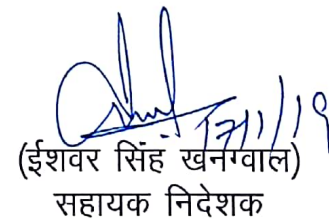 17/1/19
(ईशवर सिंह खनग्वाल)
सहायक निदेशक